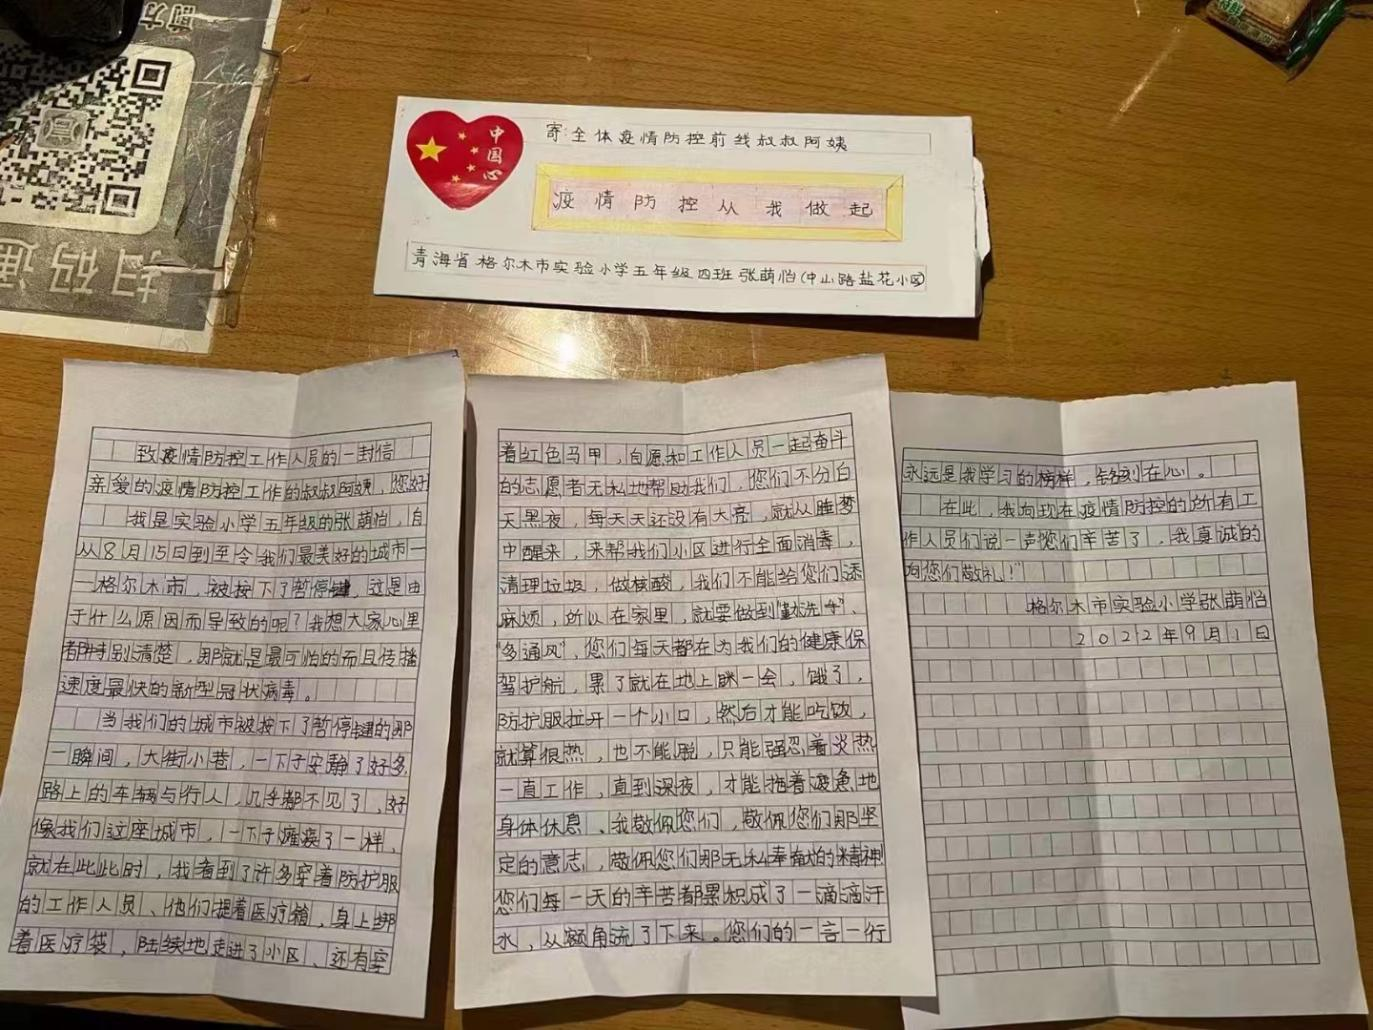 前方
扫码通
中国心
寄:全体疫情防控前线叔叔阿姨
疫情防控从我做起
青海省格尔木市实验小学五年级四班张萌怡(中山路盐花小区)
致疫情防控工作人员的一封信
亲爱的疫情防控工作的叔叔阿姨,您好
我是实验小学五年级的张萌怡,自
从8月15日到至令我们最美好的城市—
—格尔木市,被按下了暂停键,这是由
于什么原因而导致的呢?我想大家心里
都特别清楚,那就是最可怕的而且传播
速度最快的新型冠状病毒。
当我们的城市被按下了暂停键的那
一瞬间,大街小巷,一下子安静了好多,
路上的车辆与行人,几乎都不见了,好
像我们这座城市,一下子瘫痪了一样,
就在此此时,我看到了许多穿着防护服
的工作人员、他们提着医疗箱,身上绑
着医疗袋,陆续地走进了小区、还有穿
着红色马甲,自愿和工作人员一起奋斗
的志愿者无私地帮助我们,您们不分白
天黑夜,每天天还没有大亮,就从睡梦
中醒来,来帮我们小区进行全面消毒,
清理垃圾,做核酸,我们不能给您们添
麻烦,所以在家里,就要做到“勤洗手”、
“多通风”,您们每天都在为我们的健康保
驾护航,累了就在地上眯一会,饿了,
防护服拉开一个小口,然后才能吃饭,
就算很热,也不能脱,只能强忍着炎热
一直工作,直到深夜,才能拖着疲惫地
身体休息、我敬佩您们,敬佩您们那坚
定的意志,敬佩您们那无私奉献的精神
您们每一天的辛苦都累积成了一滴滴汗
水,从额角流了下来。您们的一言一行
永远是我学习的榜样,铭刻在心。
在此,我向现在疫情防控的所有工
作人员们说一声“您们辛苦了,我真诚的
向您们敬礼!”
格尔木市实验小学张萌怡
2022年9月1日